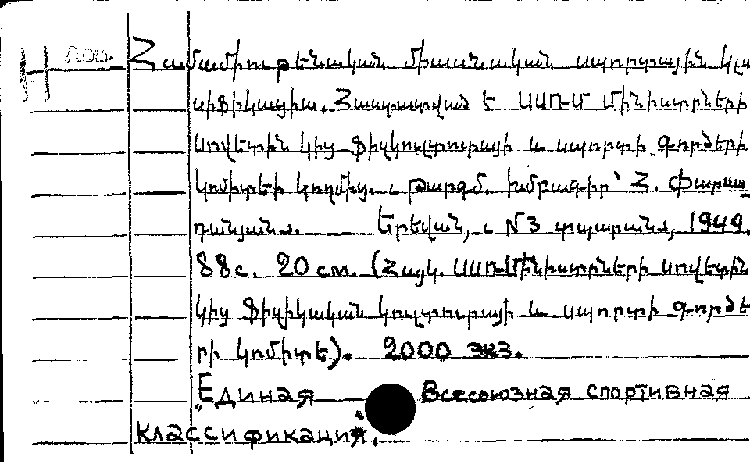 Համամիութենական միասնական սպորտային կլա
սիֆիկացիա. Հաստատված է ՍՍՌՄ Մինիստրների
Սովետին կից ֆիզկուլտուրայի և սպորտի գործերի
կոմիտեի կողմից. Թարգմ. խմբագիր՝ Հ. Փարսա
դանյան. Երեվան, N 3 տպարան, 1949.
88 с. 20 см. (Հայկ. ՍՍՌ Մինիստրների սովետին
կից Ֆիզիկական կուլտուրայի և սպորտի գործե
րի կոմիտե). 2000 экз.
"Единая Всесоюзная спортивная
классификация".